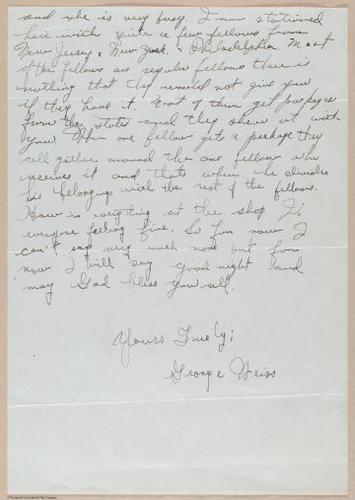 and she is very busy. I am stationed
here with quite a few fellows from
New Jersey, New York & Philadelphia. Most
of the fellows are regular fellows there is
nothing that they would not give you
if they have it. Most of them get packages
from the states and they share it with
you. When one fellow gets a package they
all gather around the one fellow who
receives it and thats when he divides
his belongings with the rest of the fellows.
How is everything at the shop Is
everyone feeling fine. So for now I
can't say very much more but for
now I will say good night and
may God bless you all.
Yours Truely;
George Weiss